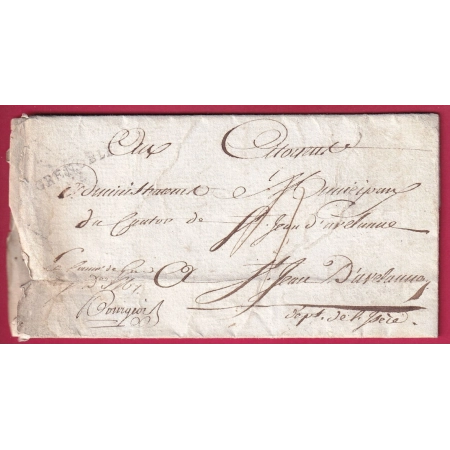 GRENOBLE
Aux Citoyens
administrateurs Municipaux
du Canton de St Jean d'avelanne
A St Jean D'avelanne
Bourgoin
dept. de l'Isère.